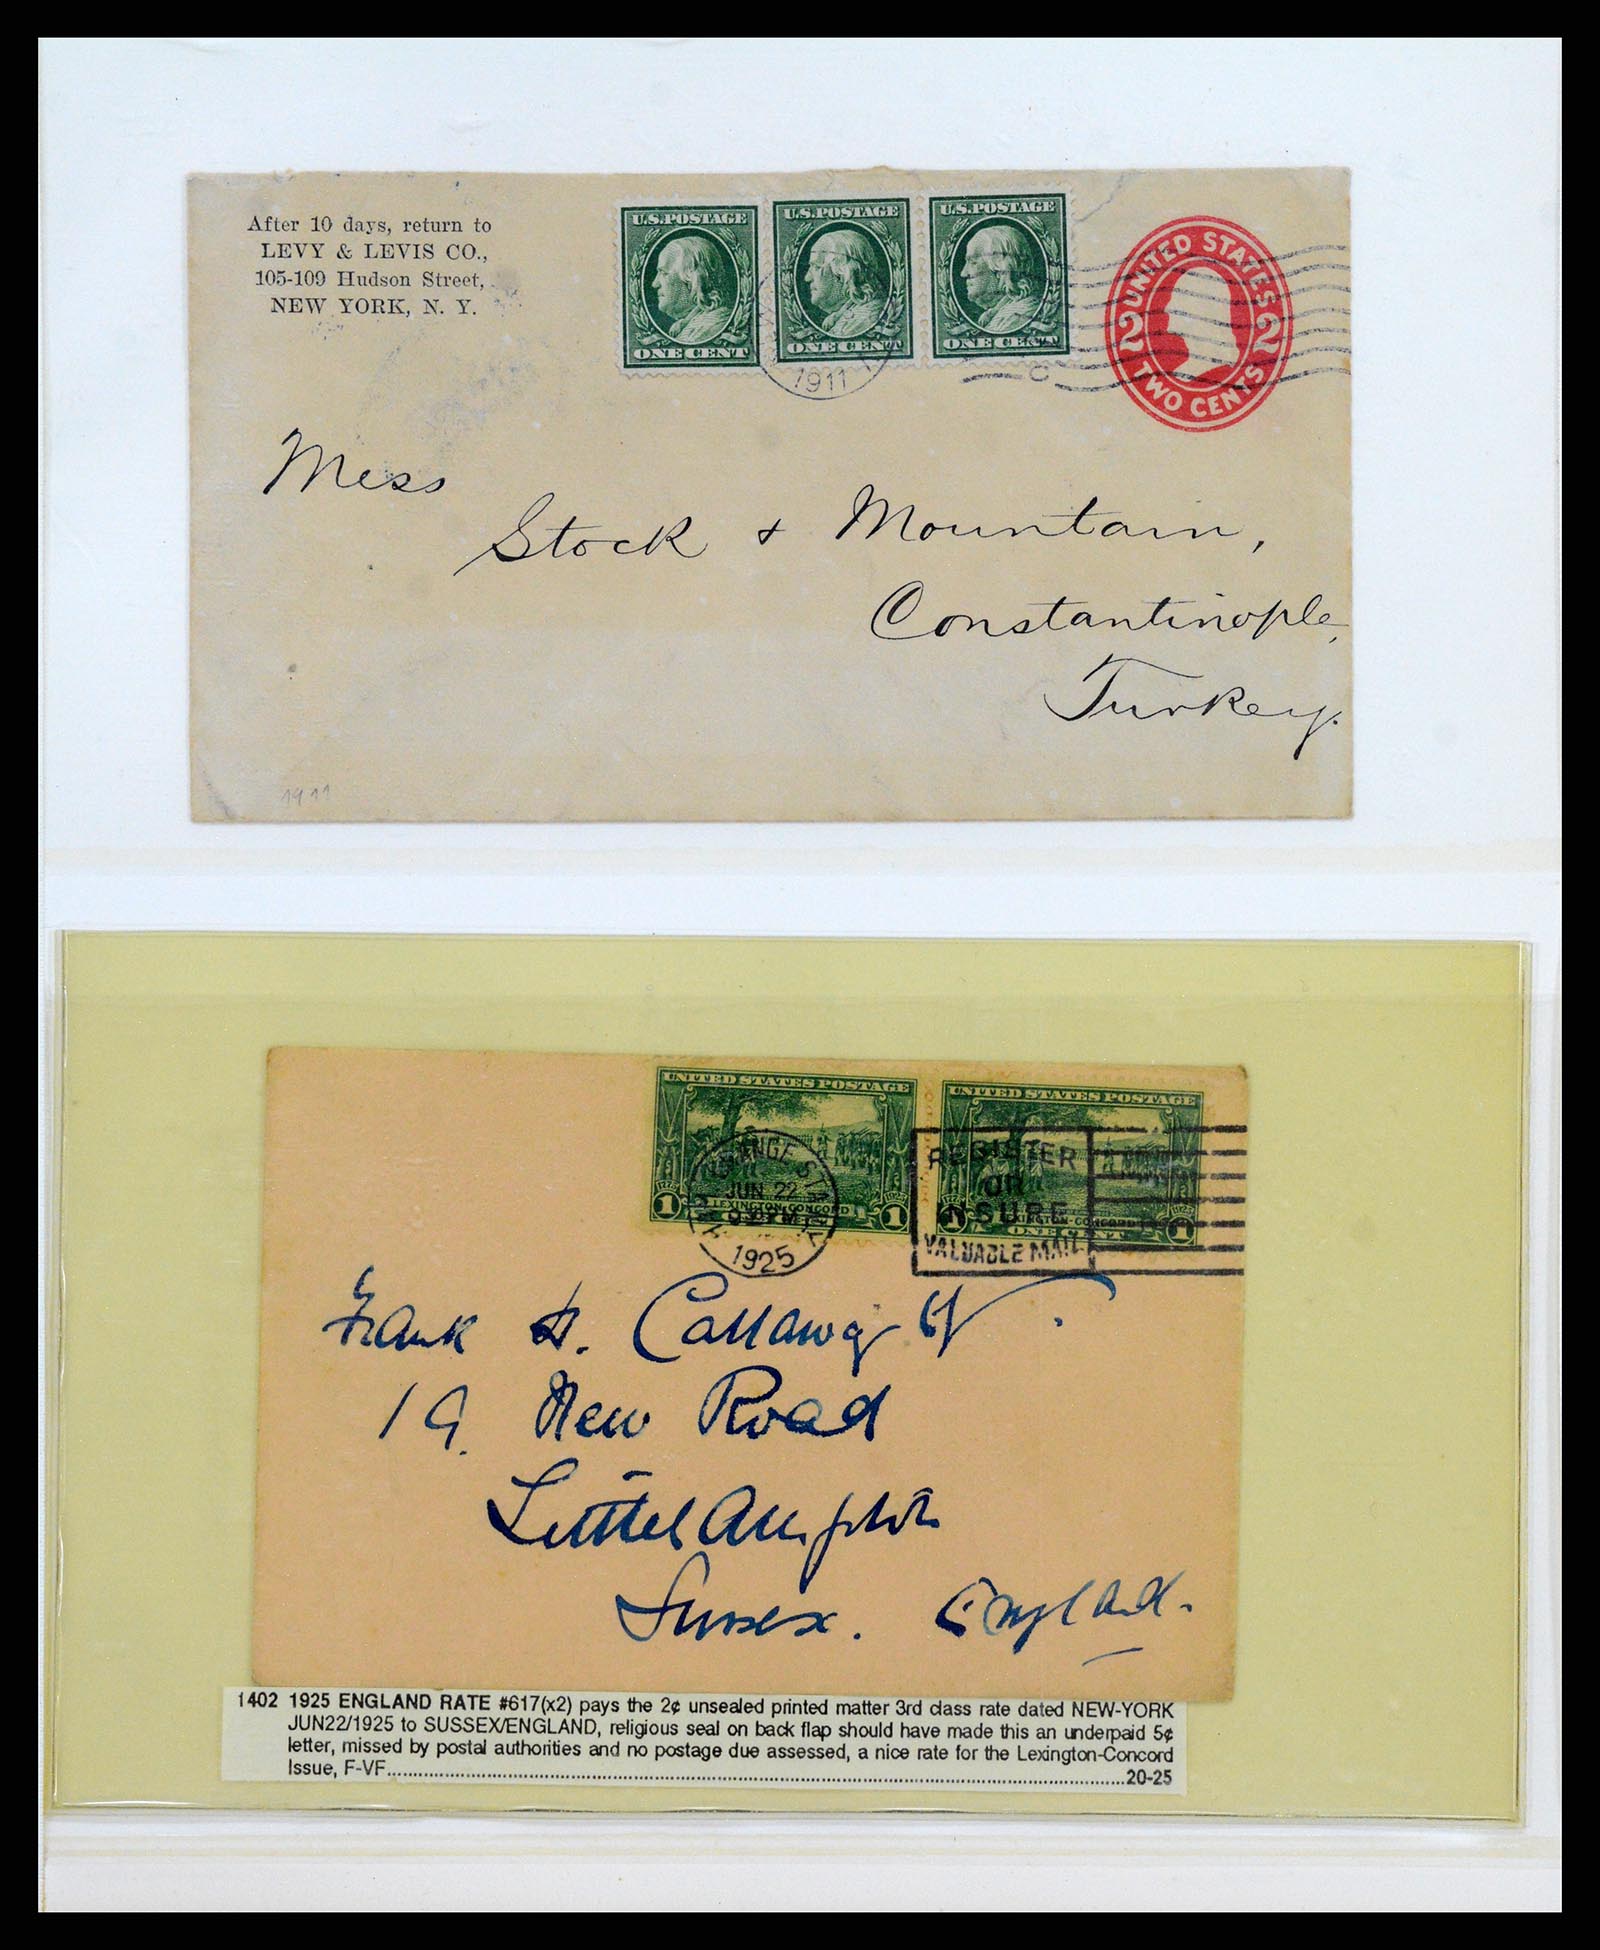 After 10 days, return to
LEVY & LEVIS CO.,
105-109 Hudson Street,
NEW YORK, N. Y.
U.S. POSTAGE
ONE CENT
U.S. POSTAGE
ONE CENT
U.S. POSTAGE
ONE CENT
1911
C
UNITED STATES
2 2
TWO CENTS
Mess
Stock & Mountain,
Constantinople,
Turkey.
1911
UNITED STATES POSTAGE
1775 1925
1 LEXINGTON-CONCORD 1
UNITED STATES POSTAGE
1775 1925
1 LEXINGTON-CONCORD 1
ONE CENT
JUN 22
1925
REGISTER
OR
INSURE
VALUABLE MAIL
Frank H. Callaway
19. New Road
Sussex. England.
1402 1925 ENGLAND RATE #617(x2) pays the 2¢ unsealed printed matter 3rd class rate dated NEW-YORK
JUN22/1925 to SUSSEX/ENGLAND, religious seal on back flap should have made this an underpaid 5¢
letter, missed by postal authorities and no postage due assessed, a nice rate for the Lexington-Concord
Issue, F-VF....................20-25